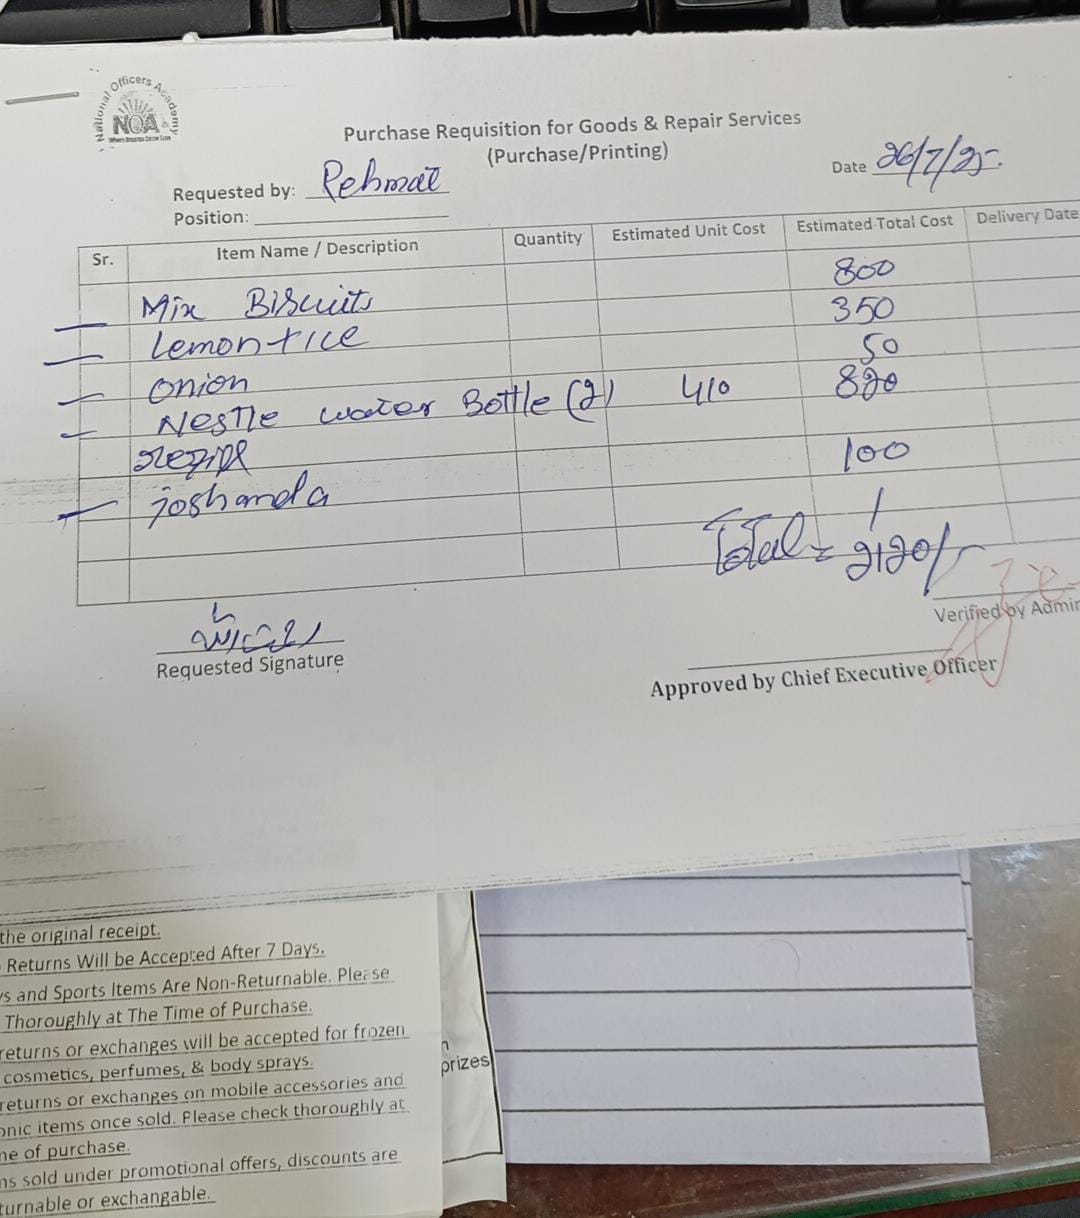 National Officers Academy
NOA
Purchase Requisition for Goods & Repair Services
(Purchase/Printing)
Requested by: Rehmat
Date 26/7/25.
Position:
Sr. Item Name / Description Quantity Estimated Unit Cost Estimated Total Cost Delivery Date
Mix Biscuits 800
Lemon + ice 350
Onion 50
Nestle water Bottle (2) 410 820
joshanda 100
Total = 2120/-
Requested Signature
Verified by Admin
Approved by Chief Executive Officer
the original receipt.
Returns Will be Accepted After 7 Days.
and Sports Items Are Non-Returnable. Please
Thoroughly at The Time of Purchase.
returns or exchanges will be accepted for frozen
cosmetics, perfumes, & body sprays.
returns or exchanges on mobile accessories and
onic items once sold. Please check thoroughly at
me of purchase.
ns sold under promotional offers, discounts are
turnable or exchangable.
prizes